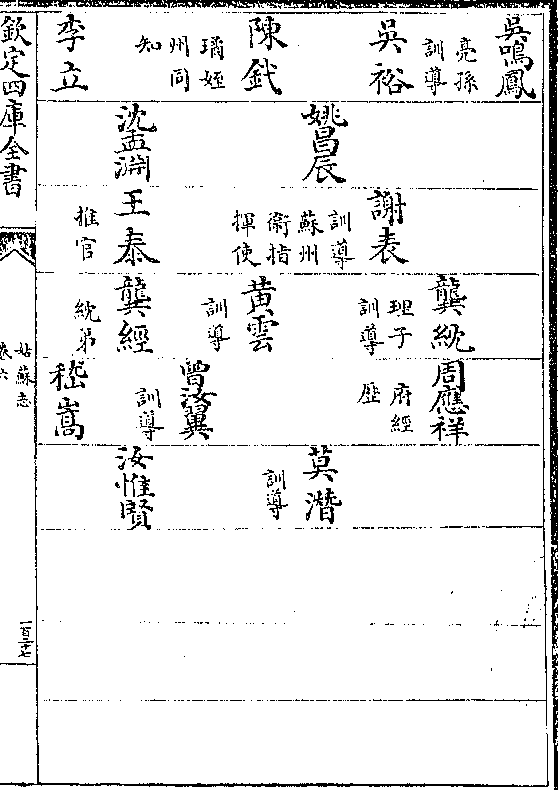 吳鳴鳳
亮孫
訓導
吳裕
陳鉞
璚姪
州同
知
李立
姚昌辰
沈孟淵
謝表
訓導
蘇州
衛指
揮使
王泰
推官
龔紞
理子
訓導
黃雲
訓導
龔經
紞弟
周應祥
府經
歴
曾汝翼
訓導
嵇嵩
莫潛
訓導
汝惟賢
欽定四庫全書
姑蘇志
卷六
一百二十七